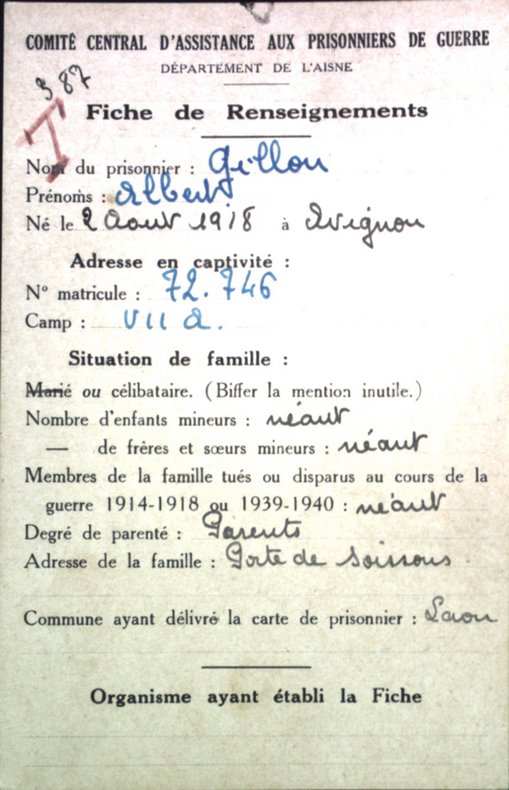 COMITÉ CENTRAL D'ASSISTANCE AUX PRISONNIERS DE GUERRE
DÉPARTEMENT DE L'AISNE
387
T
Fiche de Renseignements
Nom du prisonnier : Gillou
Prénoms : Albert
Né le 2 Aout 1918 à Avignon
Adresse en captivité :
N° matricule : 72.746
Camp : VII a.
Situation de famille :
Marié ou célibataire. (Biffer la mention inutile.)
Nombre d'enfants mineurs : néant
— de frères et sœurs mineurs : néant
Membres de la famille tués ou disparus au cours de la
guerre 1914-1918 ou 1939-1940 : néant
Degré de parenté : Parents
Adresse de la famille : Porte de Soissons
Commune ayant délivré la carte de prisonnier : Laon
Organisme ayant établi la Fiche